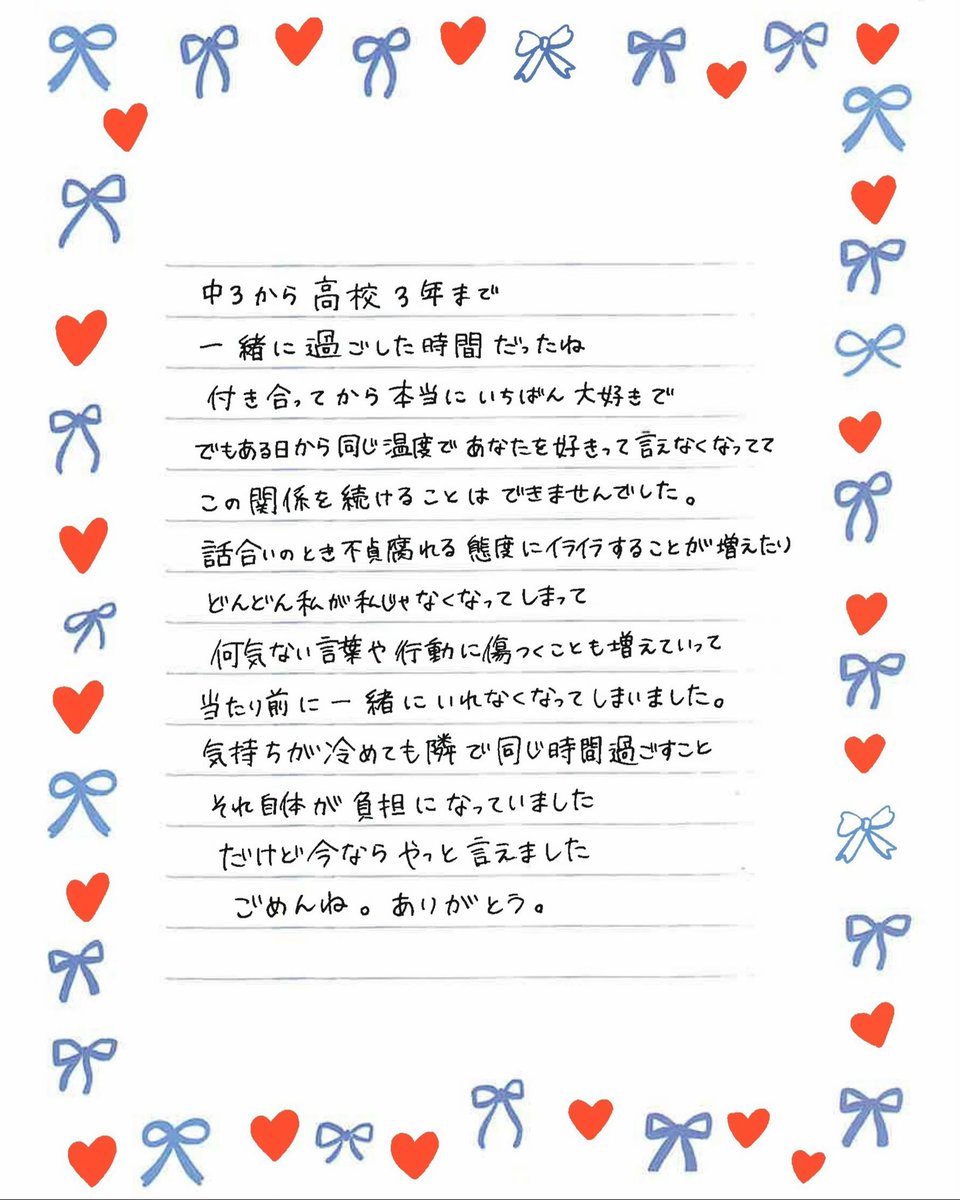 中3から高校3年まで
一緒に過ごした時間だったね
付き合ってから本当にいちばん大好きで
でもある日から同じ温度であなたを好きって言えなくなってて
この関係を続けることはできませんでした。
話合いのとき不貞腐れる態度にイライラすることが増えたり
どんどん私が私じゃなくなってしまって
何気ない言葉や行動に傷つくことも増えていって
当たり前に一緒にいれなくなってしまいました。
気持ちが冷めても隣で同じ時間過ごすこと
それ自体が負担になっていました
だけど今ならやっと言えました
ごめんね。ありがとう。